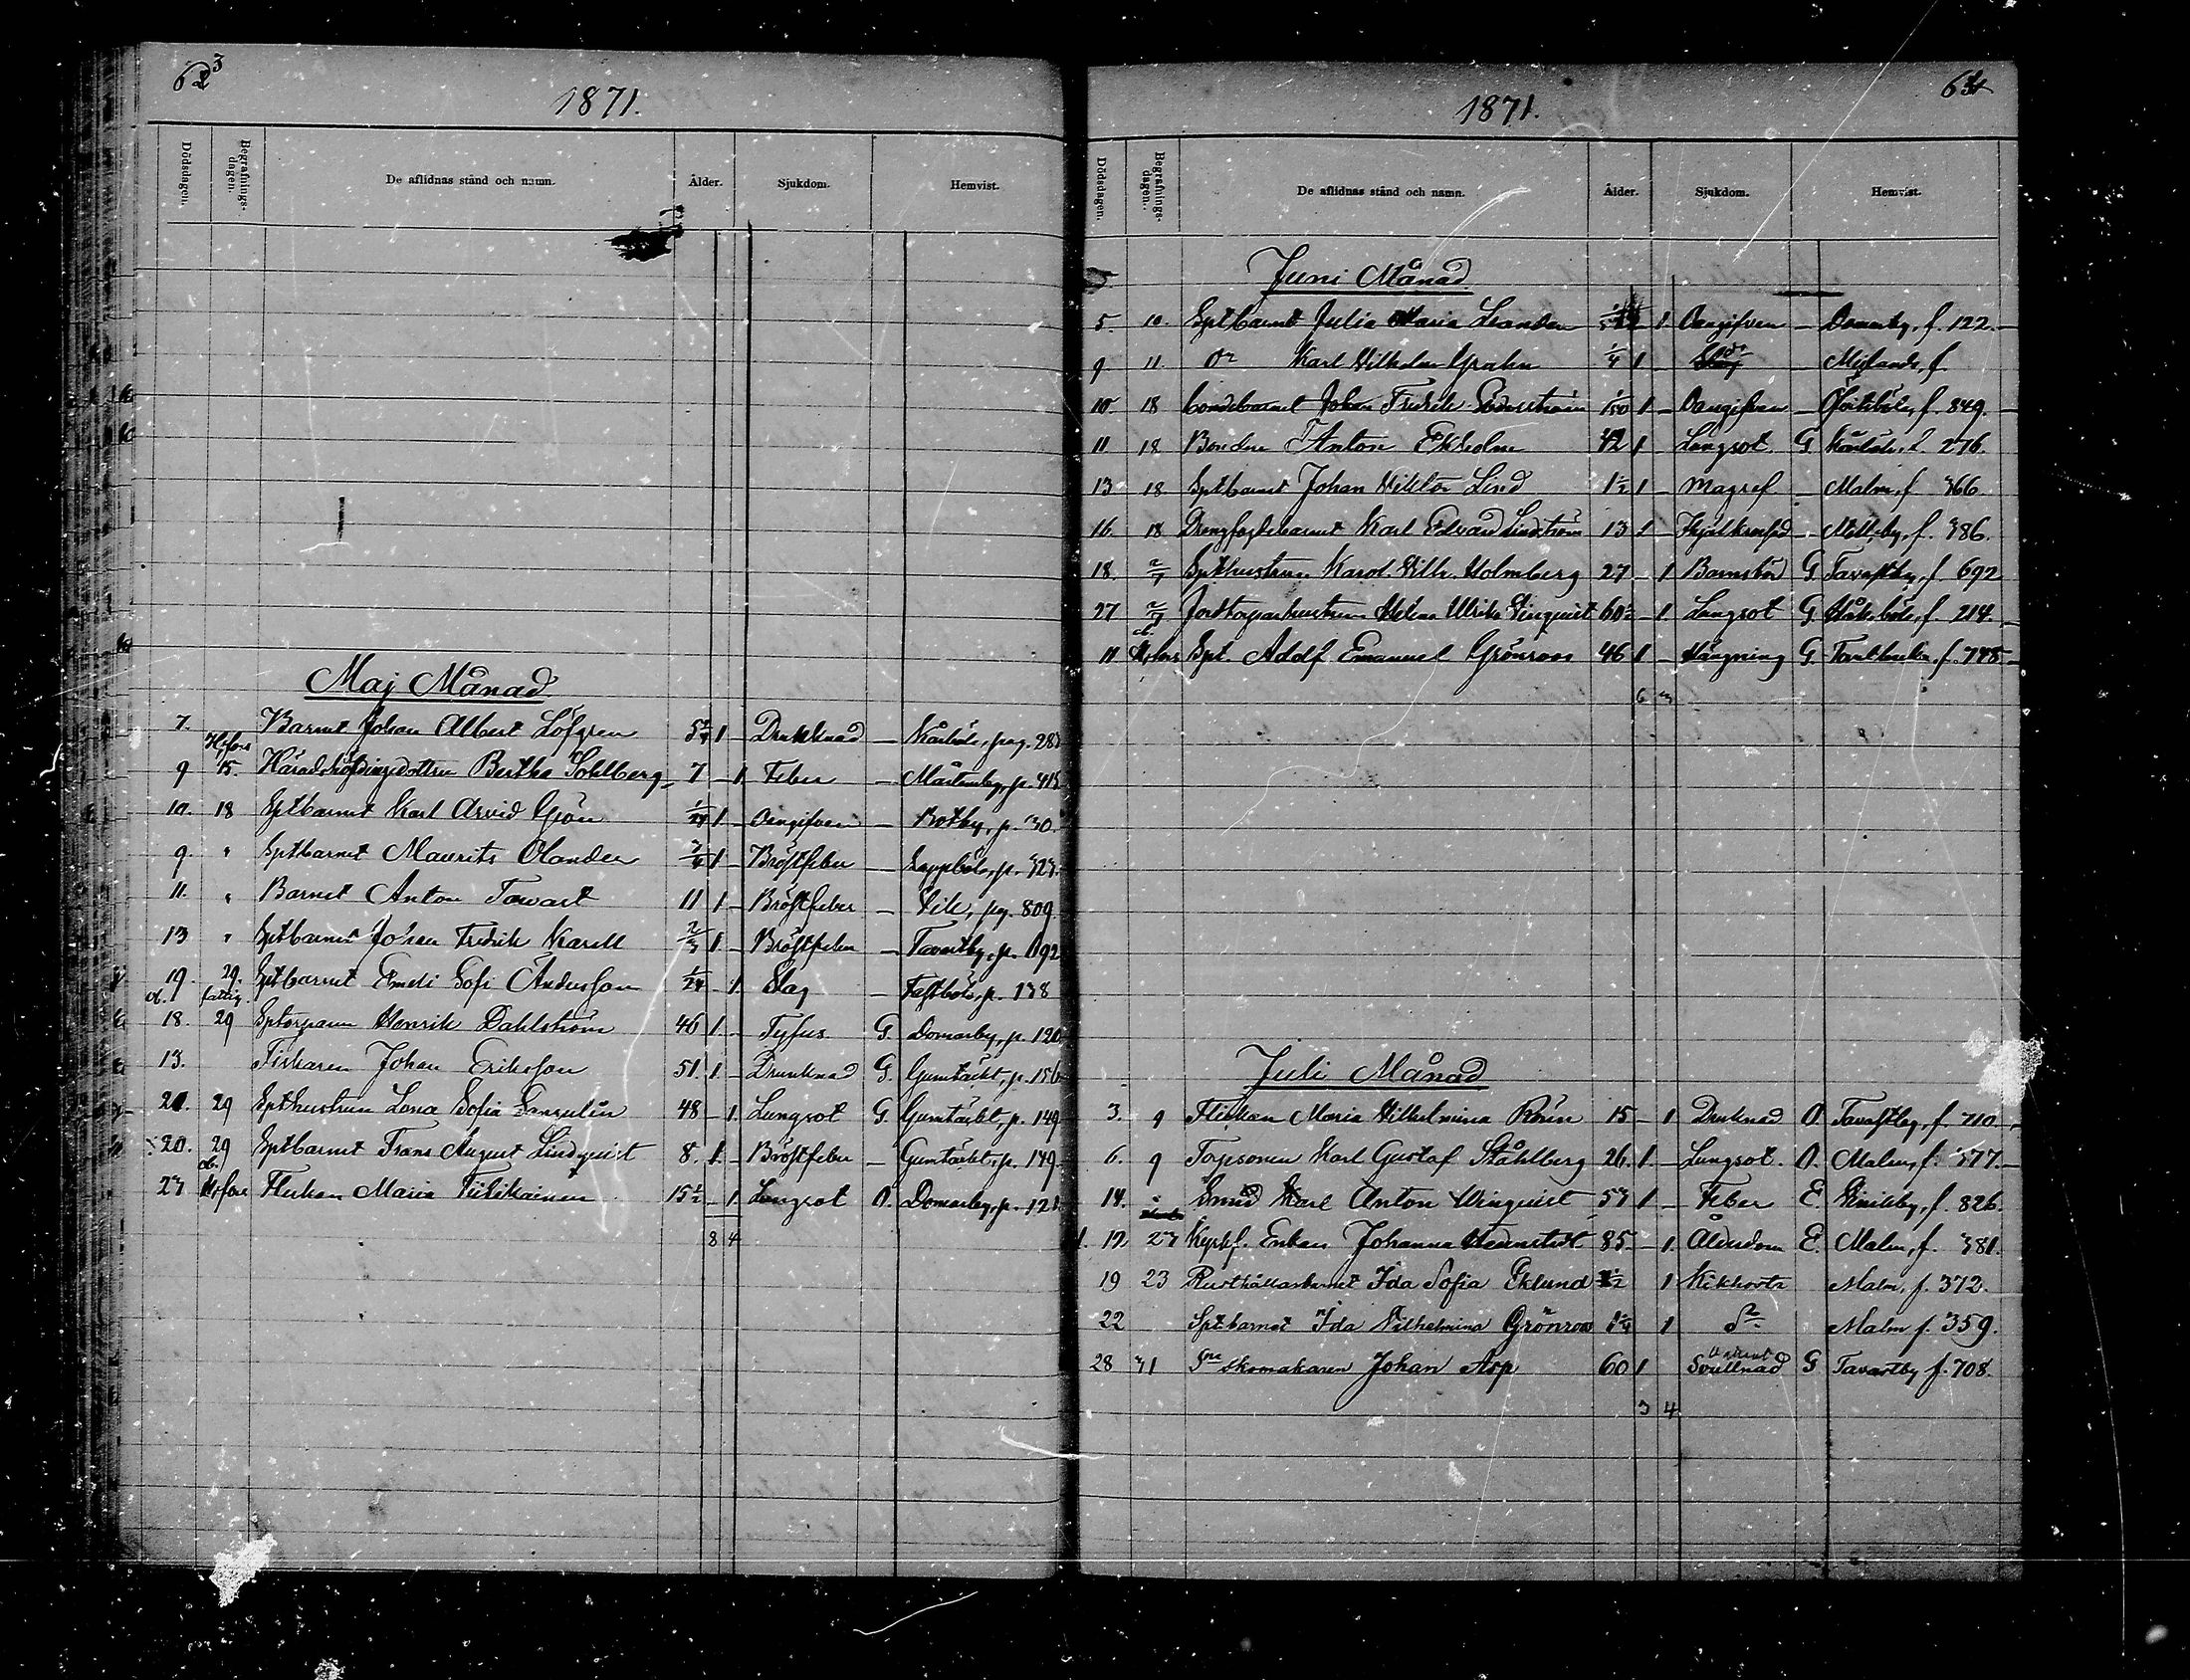 63
1871.
Dödsdagen. Begrafnings-dagen. De aflidnas stånd och namn. Ålder. Sjukdom. Hemvist.
Maj Månad
7. H:fors Barnet Johan Albert Löfgren 1 Drunknad — pag. 283
9 15. Häradshöfdingedottren Bertha Sohlberg 7 — 1 Feber — Mårtensby, p. 415
10. 18 Sptbarnet Karl Arvid Grön 1/24 1 — Oangifven — Botby, p. 30.
9. " Sptbarnet Maurits Olander 3/4 1 — Bröstfeber — p. 323.
11. " Barnet Anton Tawast 11 1 — Bröstfeber — pg. 809
13 " Sptbarnet Johan Fredrik Karell 2/3 1 — Bröstfeber — Tavastby, p. 692
19. 29. Sptbarnet Emeli Sofi Andersson 1/24 — 1. Slag — Fastböle, p. 138
ob. fattig.
18. 29 Henrik Dahlström 46 1. — Tyfus. G. Domarby, p. 120
13. Fiskaren Johan Eriksson 51. 1. — Drunknad G. Gumtäkt, p. 156
21. 29 Spthustrun Lovisa Sofia 48 — 1. Lungsot G. Gumtäkt, p. 149
20. 29 Sptbarnet Frans August Lindqvist 8. 1. — Bröstfeber — Gumtäkt, p. 149.
23 ob. H:fors Flickan Maria 15 1/2 — 1. Lungsot O. Domarby, p. 121
8 4
64
1871.
Dödsdagen. Begrafnings-dagen. De aflidnas stånd och namn. Ålder. Sjukdom. Hemvist.
Juni Månad
5. 10. Sptbarnet Julia Maria Leander 1 Oangifven — Domarby, f. 122. —
9 11. Do Karl Vilhelm Grahn 1/4 1 — Do — f.
10. 18 Bondebarnet Johan Fredrik Söderström 1 — Oangifven — f. 849. —
11 18 Bonden Anton Ekholm 42 1 — Lungsot. G f. 276.
13 18. Sptbarnet Johan Viktor Lind 1 1/2 1 — Magref — Malm, f 366
16. 18 Karl Edvard Lindström 13 1 — — f. 386.
18. 2/7 Spthustrun Karol. Vilh. Holmberg 27 — 1 Barnsbörd G. Tavastby, f 692
27 2/7 Helena Ulrika 60 1/2 — 1. Lungsot G. f. 214. —
11 ob. H:fors Spt. Adolf Emanuel Grönroos 46 1 — Hängning G. f. 778 —
6 3
Juli Månad
3. 9 Flickan Maria Vilhelmina Rosin 15 — 1 Drunknad O. Tavastby, f. 710 —
6. 9 Torpsonen Karl Gustaf Ståhlberg 26. 1. — Lungsot. O. Malm, f. 377. —
14. " Smed Karl Anton Winquist 53 1 — Feber E. f. 826.
17. 23 Enkan Johanna Hedenstedt 85 — 1. Ålderdom E. Malm, f. 381.
19 23 Rusthållarbarnet Ida Sofia Eklund 1/2 1 Kikhosta Malm, f. 372.
22 Spt.barnet Ida Vilhelmina Grönroos 1 1/4 1 Do Malm f. 359.
28 31 Skomakaren Johan Asp 60 1 Svullnad G Tavastby f. 708.
3 4